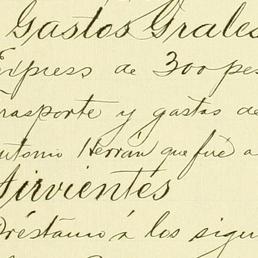 Gastos Grales
Express de 300 pes
Trasporte y gastos de
Antonio Herrán que fué a
Sirvientes
Préstamo á los sigui